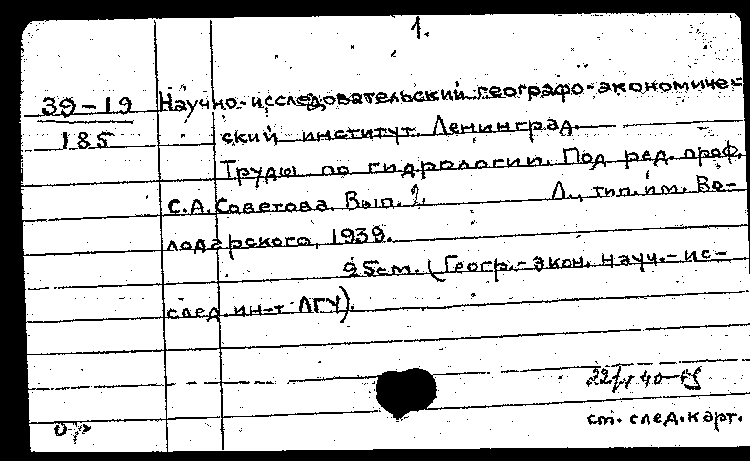 1.
39-19 Научно-исследовательский географо-экономичес-
185 ский институт. Ленинград.
Труды по гидрологии. Под ред. проф.
С.А. Советова. Вып. 2. Л., тип. им. Во-
лодарского, 1939.
25см. (Геогр.-экон. науч.-ис-
след. ин-т ЛГУ).
см. след. карт.